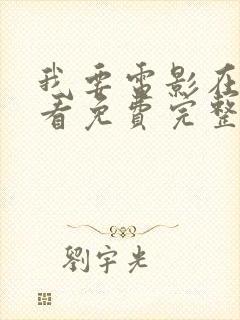 我要雷影在
看免費完整
劉宇光